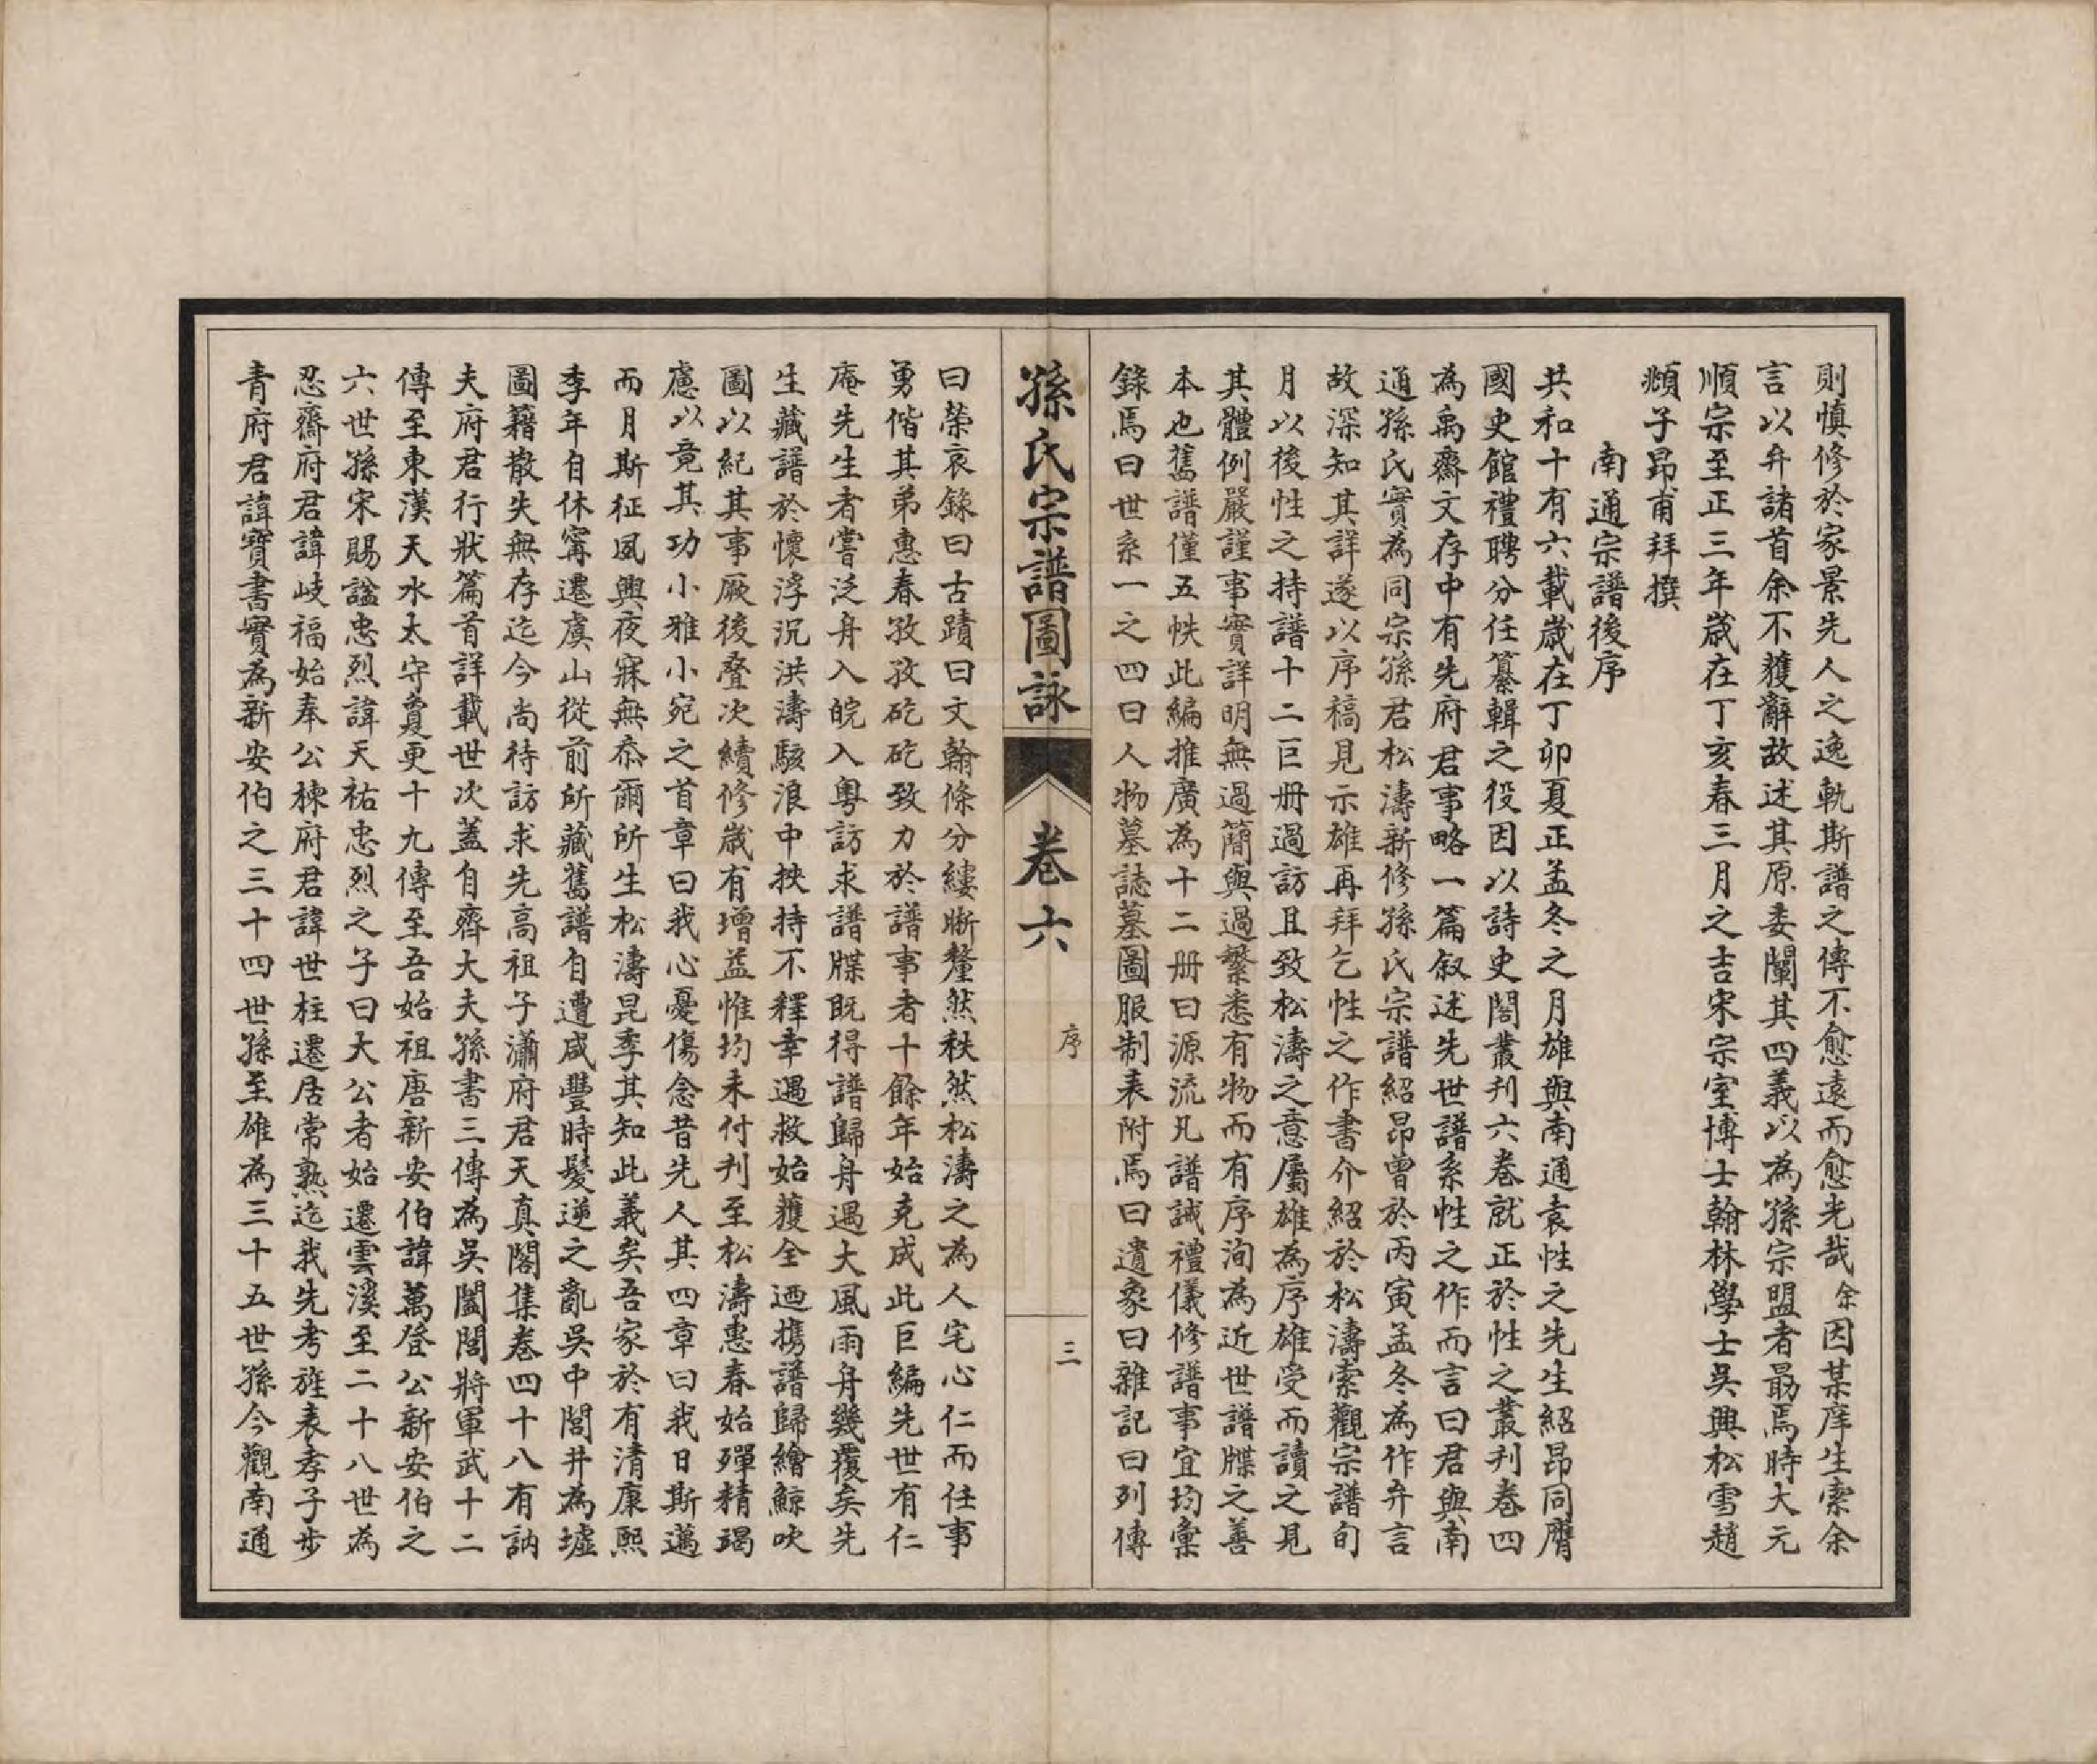 則慎修於家景先人之逸軌斯譜之傳不愈遠而愈光哉余因某庠生索余
言以弁諸首余不獲辭故述其原委闡其四義以為孫宗盟者勗焉時大元
順宗至正三年歲在丁亥春三月之吉宋宗室博士翰林學士吳興松雪趙
頫子昂甫拜撰
南通宗譜後序
共和十有六載歲在丁卯夏正孟冬之月雄與南通袁性之先生紹昂同膺
國史館禮聘分任纂輯之役因以詩史閣叢刋六卷就正於性之叢刋卷四
為禹齋文存中有先府君事略一篇叙述先世譜系性之作而言曰君與南
通孫氏實為同宗孫君松濤新修孫氏宗譜紹昂曾於丙寅孟冬為作弁言
故深知其詳遂以序稿見示雄再拜乞性之作書介紹於松濤索觀宗譜旬
月以後性之持譜十二巨册過訪且致松濤之意屬雄為序雄受而讀之見
其體例嚴謹事實詳明無過簡與過繁悉有物而有序洵為近世譜牒之善
本也舊譜僅五帙此編推廣為十二册曰源流凡譜誡禮儀修譜事宜均彙
錄焉曰世系一之四曰人物墓誌墓圖服制表附焉曰遺象曰雜記曰列傳
孫氏宗譜圖詠
卷六
序
三
曰榮哀錄曰古蹟曰文翰條分縷晰釐然秩然松濤之為人宅心仁而任事
勇偕其弟惠春孜孜矻矻致力於譜事者十餘年始克成此巨編先世有仁
庵先生者嘗泛舟入皖入粵訪求譜牒既得譜歸舟遇大風雨舟幾覆矣先
生藏譜於懷浮沉洪濤駭浪中挾持不釋幸遇救始獲全迺擕譜歸繪鯨吹
圖以紀其事厥後疊次續修歲有增益惟均未付刋至松濤惠春始殫精竭
慮以竟其功小雅小宛之首章曰我心憂傷念昔先人其四章曰我日斯邁
而月斯征夙興夜寐無忝爾所生松濤昆季其知此義矣吾家於有清康熙
季年自休寗遷虞山從前所藏舊譜自遭咸豐時髮逆之亂吳中閭井為墟
圖籍散失無存迄今尚待訪求先高祖子瀟府君天真閣集卷四十八有訥
夫府君行狀篇首詳載世次蓋自齊大夫孫書三傳為吳闔閭將軍武十二
傳至東漢天水太守賁更十九傳至吾始祖唐新安伯諱萬登公新安伯之
六世孫宋賜謚忠烈諱天祐忠烈之子曰大公者始遷雲溪至二十八世為
忍齋府君諱岐福始奉公棟府君諱世柱遷居常熟迄我先考旌表孝子步
青府君諱寶書實為新安伯之三十四世孫至雄為三十五世孫今觀南通